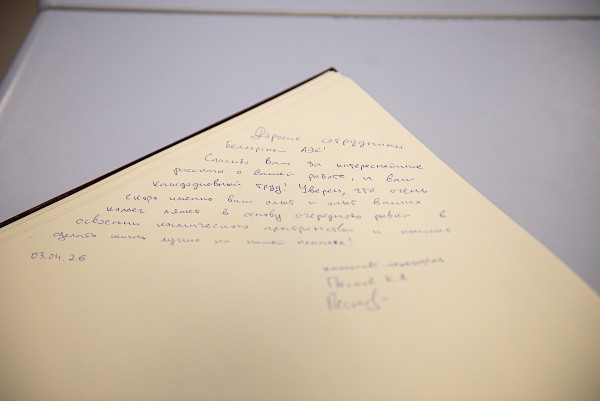 Дорогие сотрудники
Белоярской АЭС!
Спасибо Вам за интереснейшие
рассказы о вашей работе, и ваш
каждодневный труд! Уверен, что очень
скоро именно ваш опыт и опыт ваших
коллег ляжет в основу очередного рывка в
освоении космического пространства и поможет
сделать жизнь лучше на нашей планете!
03.04.26
космонавт-испытатель
Песков К.А